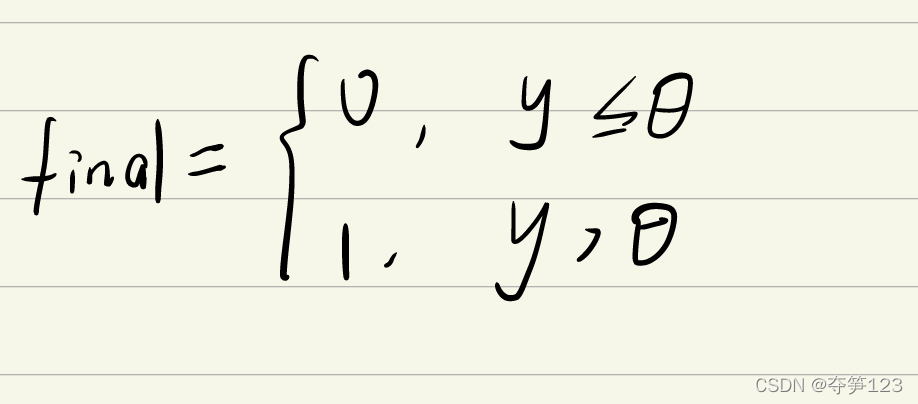 final = { 0, y ≤ θ
1, y > θ
CSDN @夺笋123